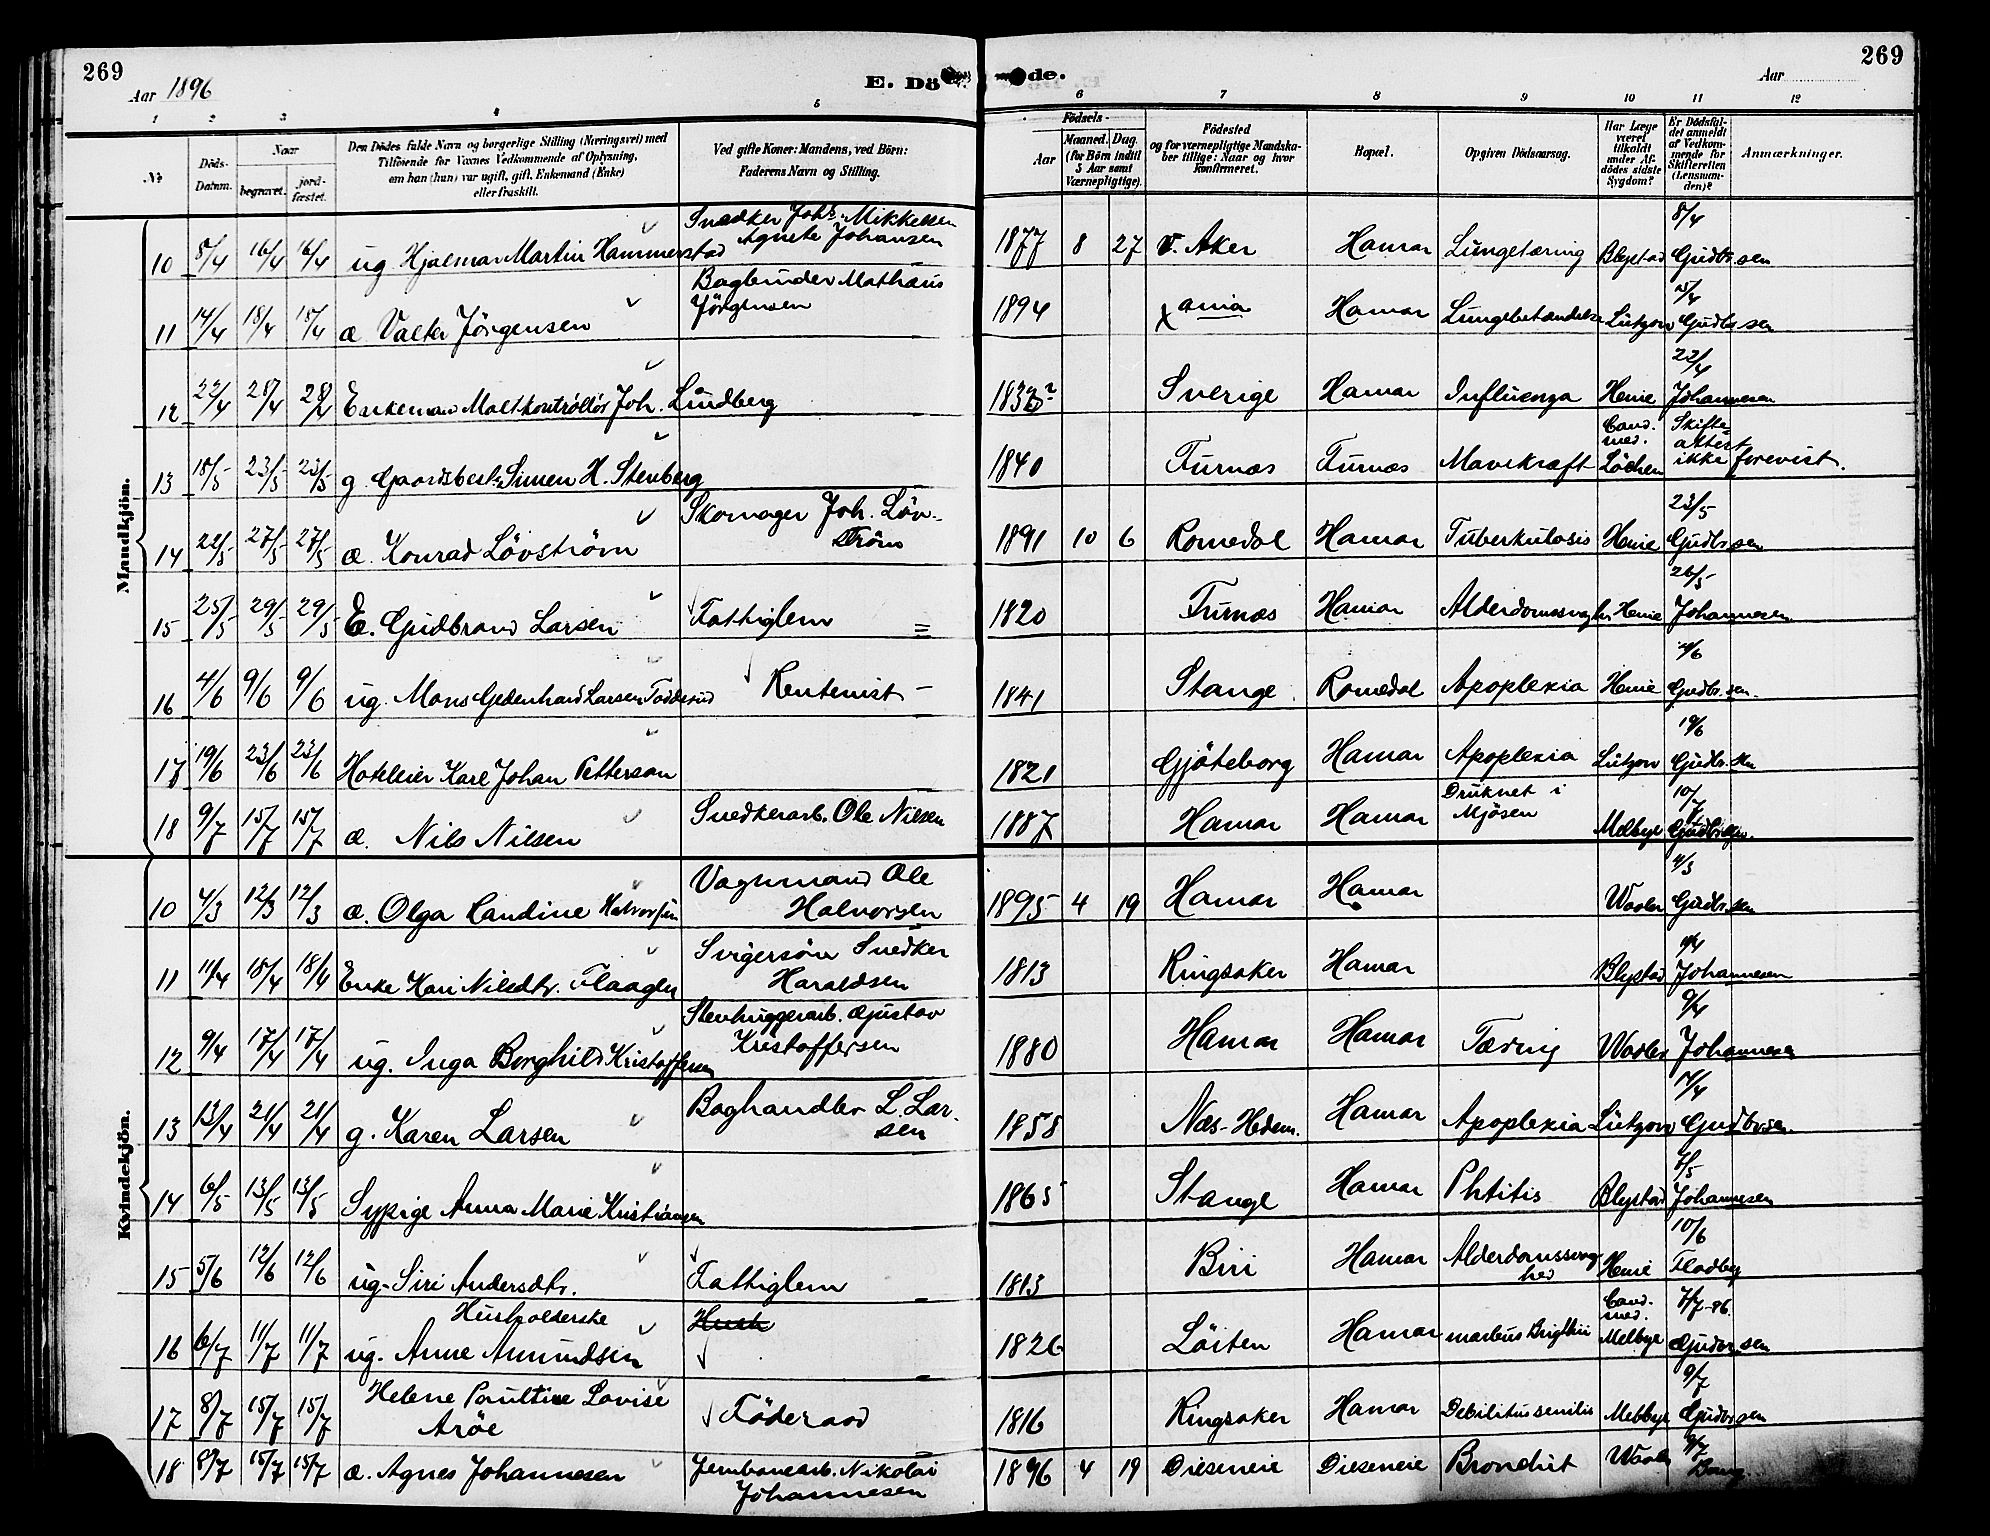 269
269
Aar 1896
E. Döde.
Aar
1 2 3 4 5 6 7 8 9 10 11 12
No
Döds-Datum.
Naar
begravet.
jordfæstet.
Den Dödes fulde Navn og borgerlige Stilling (Næringsvei) med
Tilföiende for Voxnes Vedkommende af Oplysning,
om han (hun) var ugift, gift, Enkemand (Enke)
eller fraskilt.
Ved gifte Koner: Mandens, ved Börn:
Faderens Navn og Stilling.
Födsels-
Aar
Maaned. Dag.
(for Börn indtil 5 Aar samt Værnepligtige).
Födested
og for værnepligtige Mandskaber tillige: Naar og hvor Konfirmeret.
Bopæl.
Opgiven Dödsaarsag.
Har Læge været tilkaldt under Afdödes sidste Sygdom?
Er Dödsfaldet anmeldt af Vedkommende for Skifteretten (Lensmanden)?
Anmærkninger.
Mandkjön.
10 8/4 16/4 16/4 ug Hjalmar Martin Hammerstad Snedker Johs. Mikkelsen Agnete Johansen 1877 8 27 V. Aker Hamar Lungetæring Blystad 8/4 Gudbr.sen
11 14/4 18/4 18/4 æ Valter Jörgensen Bogbinder Mathæus Jörgensen 1894 Xania Hamar Lungebetændelse Lützow 15/4 Gudbr.sen
12 22/4 28/4 28/4 Enkemand Maltkontrollör Joh. Lundberg Sverige Hamar Influenza Heie 22/4 Johannesen
13 18/5 23/5 23/5 g. Gaardsbest. Simen H. Stenberg 1840 Furnæs Furnæs Mavekræft Cand. med. Löchen Skifteattest ikke forevist.
14 22/5 27/5 27/5 æ. Konrad Lövström Skomager Joh. Lövström 1891 10 6 Romedal Hamar Tuberkulosis Heie 23/5 Gudbr.sen
15 25/5 29/5 29/5 E. Gudbrand Larsen Fattiglem = 1820 Furnæs Hamar Alderdomssvagh. Heie 26/5 Johannesen
16 4/6 9/6 9/6 ug. Mons Gedenhard Larsen Fodderud Rentenist - 1841 Stange Romedal Apoplexia Heie 4/6 Gudbr.sen.
17 19/6 23/6 23/6 Hoteleier Karl Johan Petterson 1821 Gjöteborg Hamar Apoplexia Lützow 19/6 Gudbr.sen
18 9/7 15/7 15/7 æ. Nils Nilsen Snedkerarb. Ole Nilsen 1887 Hamar Hamar Druknet i Mjösen Melbye 10/7 Gudbr.sen.
Kvindekjön.
10 4/3 12/3 12/3 æ. Olga Randine Halvorsen Vognmand Ole Halvorsen 1895 4 19 Hamar Hamar Waaler 4/3 Gudbr.sen
11 11/4 18/4 18/4 Enke Kari Nilsdtr. Flaagler Svigersön Snedker Haraldsen 1813 Ringsaker Hamar Blystad Johannesen
12 9/4 17/4 17/4 ug. Inga Borghild Kristoffersen Stenhuggerarb. Gustav Kristoffersen 1880 Hamar Hamar Tæring Waaler 9/4 Johannesen
13 13/4 21/4 21/4 g. Karen Larsen Boghandler L. Larsen 1858 Næs-Hedem. Hamar Apoplexia Lützow 14/4 Gudbrsen.
14 6/5 13/5 13/5 Sypige Anna Marie Kristiansen 1865 Stange Hamar Phtitis Blystad 7/5 Johannesen
15 5/6 12/6 12/6 ug. Siri Andersdtr. Fattiglem 1813 Biri Hamar Alderdomssvaghed Heie 10/6 Flodby
16 6/7 11/7 11/7 Husholderske ug. Anne Amundsen Hush 1826 Löiten Hamar morbus Brightii Cand. med. Melbye 7/7-96. Gudbr.sen
17 8/7 15/7 15/7 Helene Paultine Lovise Aröe Föderaad 1816 Ringsaker Hamar Debilitus senilis Melbye 9/7 Gudbr.sen
18 8/7 15/7 15/7 æ. Agnes Johannesen Jernbanearb. Nikolai Johannesen 1896 4 19 Dieseneie Dieseneie Bronchit Waaler 9/7